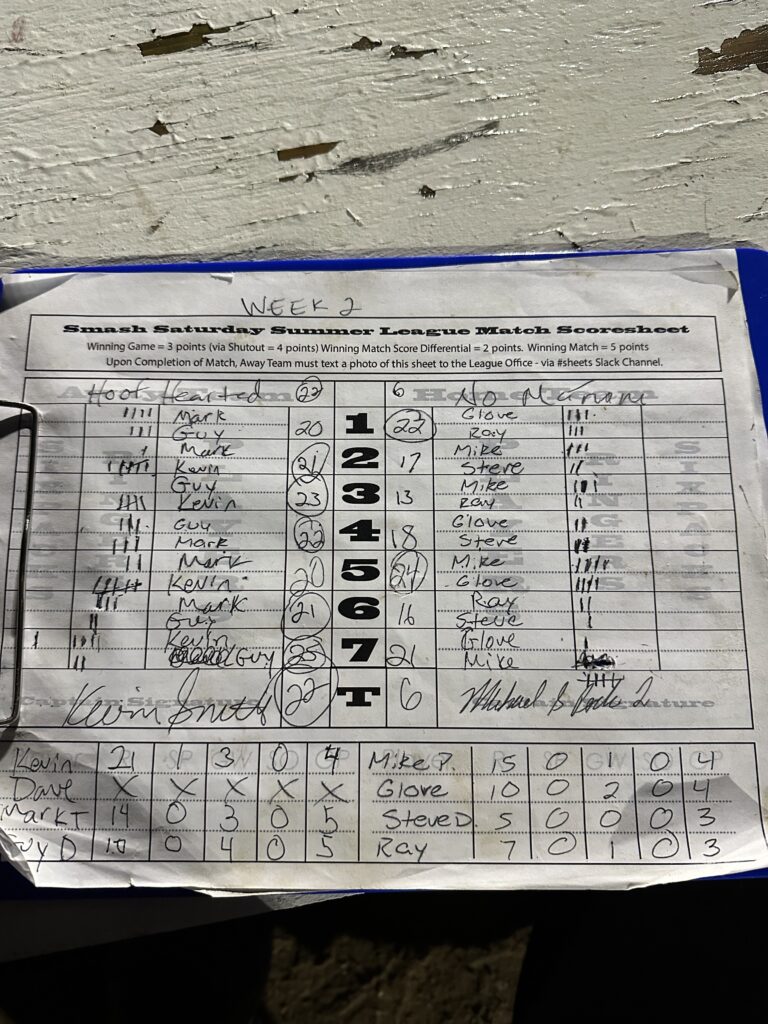 WEEK 2
Smash Saturday Summer League Match Scoresheet
Winning Game = 3 points (via Shutout = 4 points) Winning Match Score Differential = 2 points. Winning Match = 5 points
Upon Completion of Match, Away Team must text a photo of this sheet to the League Office - via #sheets Slack Channel.
Hoof Hearted 22 6 No
Mark Glove
Guy 20 1 22 Ray
Mark Mike
Kevin 21 2 17 Steve
Guy Mike
Kevin 23 3 13 Ray
Guy Glove
Mark 22 4 18 Steve
Mark Mike
Kevin 20 5 24 Glove
Mark Ray
Guy 21 6 16 Steve
Kevin Glove
Guy 25 7 21 Mike
Kevin Smith 22 T 6
Kevin 21 1 3 0 4 Mike P. 15 0 1 0 4
Dave X X X X X Glove 10 0 2 0 4
Mark T 14 0 3 0 5 Steve D. 5 0 0 0 3
Guy D 10 0 4 0 5 Ray 7 0 1 0 3